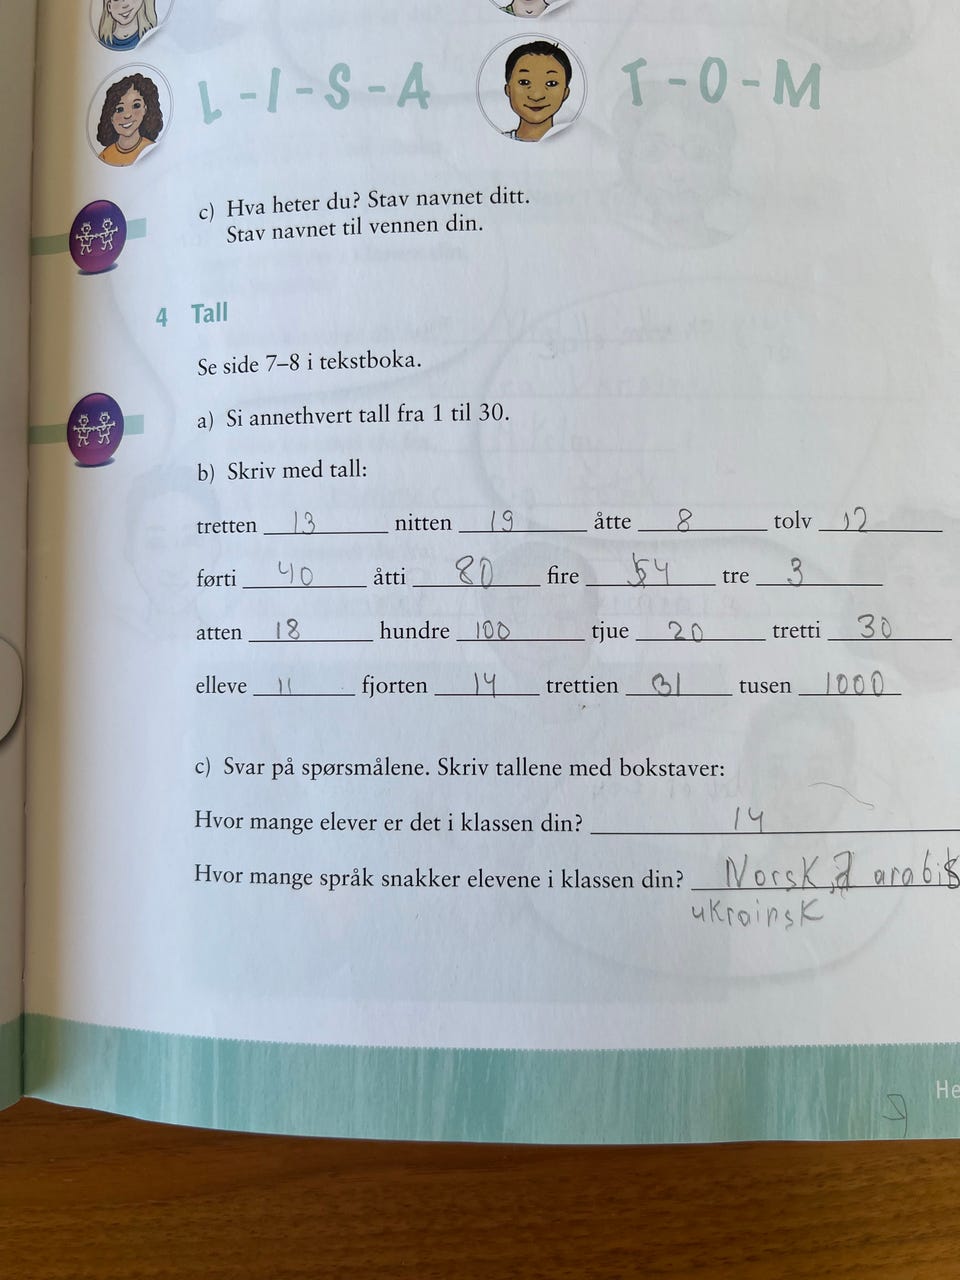 L - I - S - A T - O - M
c) Hva heter du? Stav navnet ditt.
Stav navnet til vennen din.
4 Tall
Se side 7–8 i tekstboka.
a) Si annethvert tall fra 1 til 30.
b) Skriv med tall:
tretten 13 nitten 19 åtte 8 tolv 12
førti 40 åtti 80 fire 4 tre 3
atten 18 hundre 100 tjue 20 tretti 30
elleve 11 fjorten 14 trettien 31 tusen 1000
c) Svar på spørsmålene. Skriv tallene med bokstaver:
Hvor mange elever er det i klassen din? 14
Hvor mange språk snakker elevene i klassen din? Norsk, arabis
ukrainsk
He